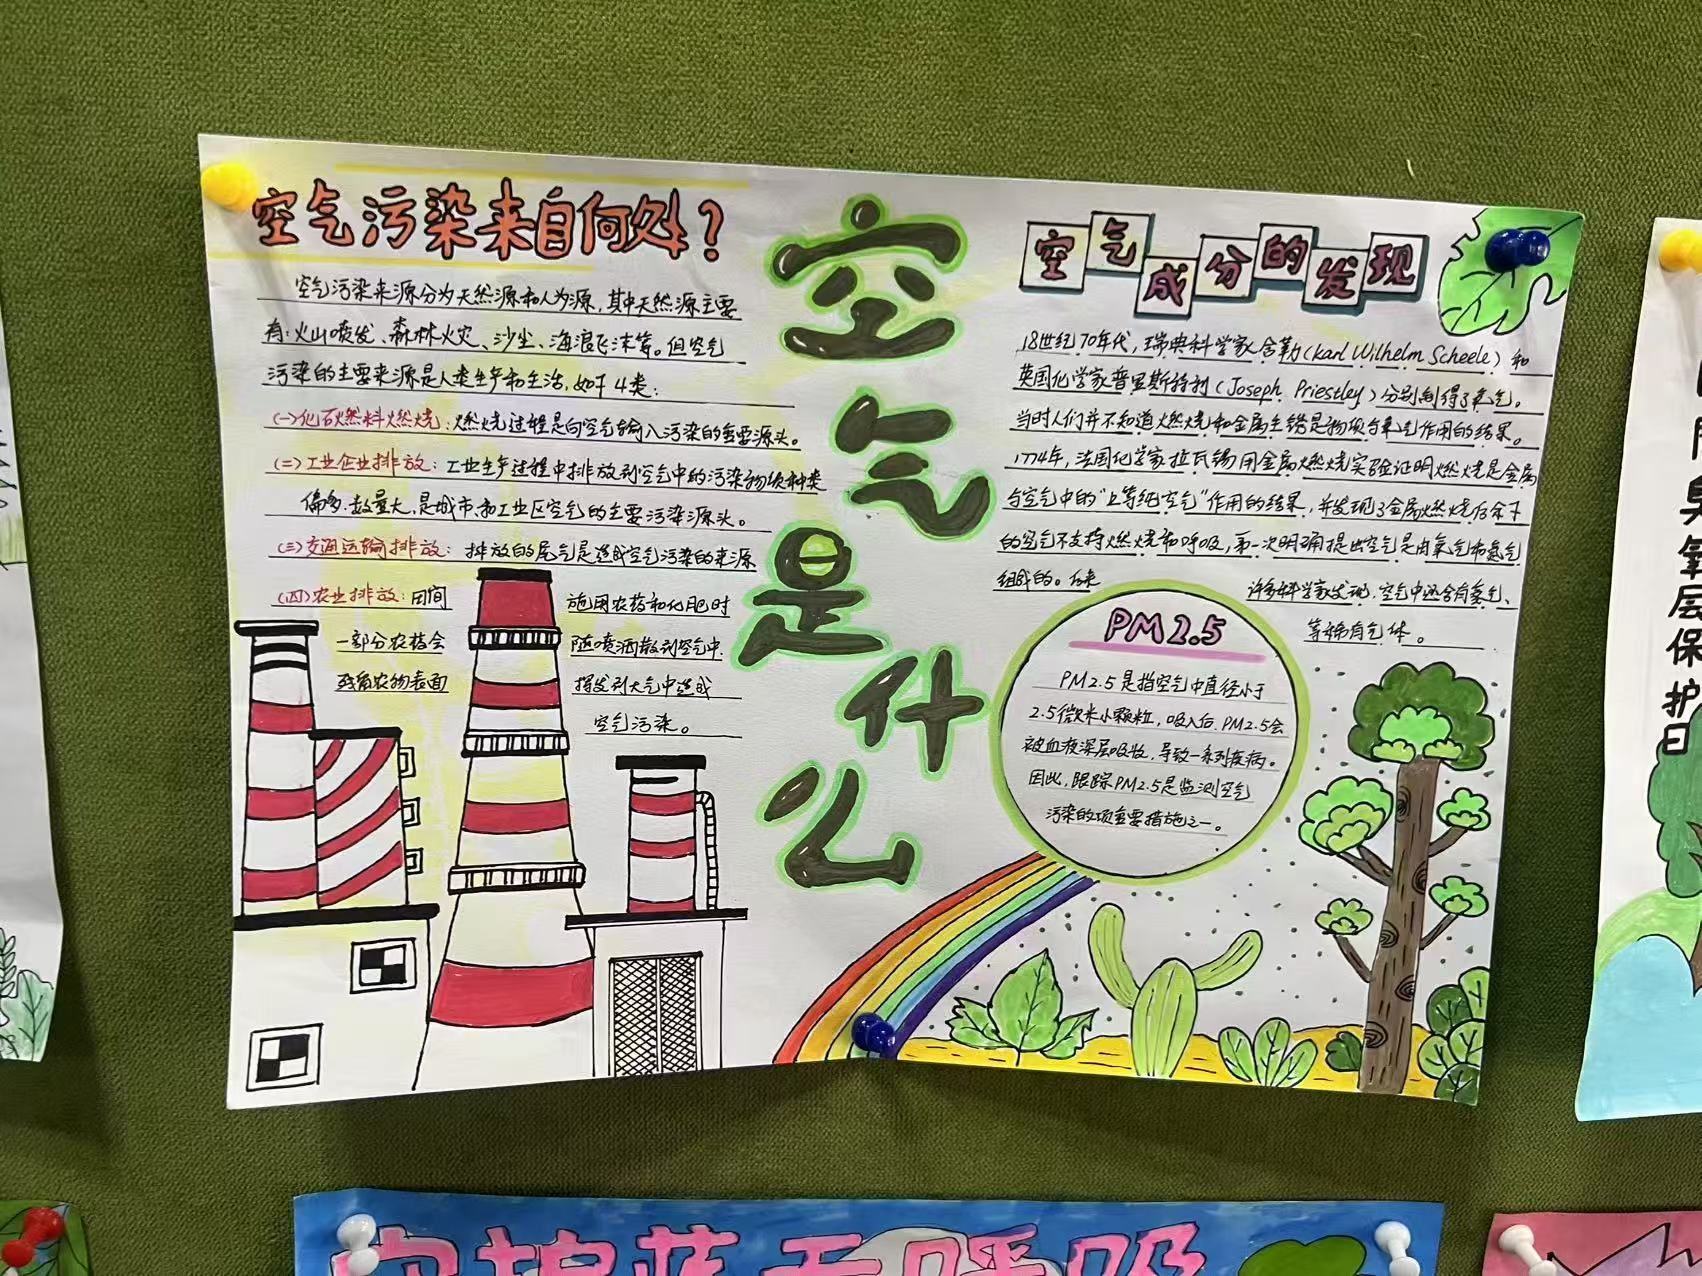 空气污染来自何处？
空气污染来源分为天然源和人为源，其中天然源主要
有：火山喷发、森林火灾、沙尘、海浪飞沫等。但空气
污染的主要来源是人类生产和生活，如下4类：
(一)化石燃料燃烧：燃烧过程是向空气输入污染的重要源头。
(二)工业企业排放：工业生产过程中排放到空气中的污染物质种类
偏多.数量大，是城市和工业区空气的主要污染源头。
(三)交通运输排放：排放的尾气是造成空气污染的来源
(四)农业排放：田间 施用农药和化肥时
一部分农药会 随喷洒散到空气中.
残留农物表面 挥发到大气中造成
空气污染。
空气是什么
空气成分的发现
18世纪70年代，瑞典科学家舍勒(Karl Wilhelm Scheele) 和
英国化学家普里斯特利(Joseph Priestley)分别制得了氧气。
当时人们并不知道燃烧和金属生锈是物质与氧气作用的结果。
1774年，法国化学家拉瓦锡用金属燃烧实验证明燃烧是金属
与空气中的“上等纯空气”作用的结果，并发现了金属燃烧后余下
的空气不支持燃烧和呼吸，第一次明确提出空气是由氧气和氮气
组成的。后来 许多科学家发现，空气中还含有氦气、
等稀有气体。
PM2.5
PM2.5是指空气中直径小于
2.5微米小颗粒，吸入后.PM2.5会
被血液深层吸收，导致一系列疾病。
因此，跟踪PM2.5是监测空气
污染的项重要措施之一。
臭氧层保护日
蓝天呼吸